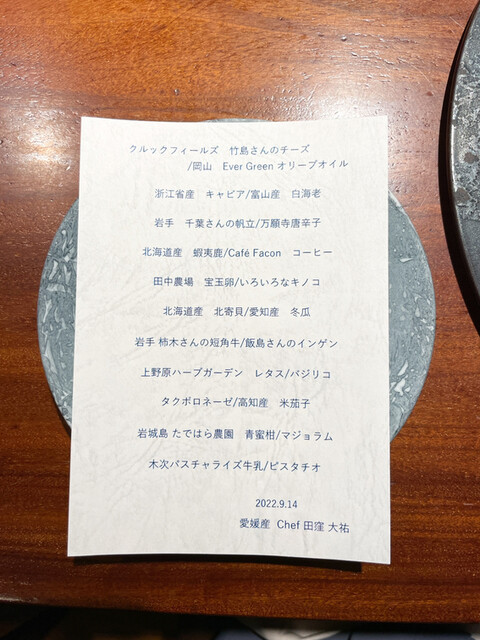 クルックフィールズ　竹島さんのチーズ
/岡山　Ever Green オリーブオイル
浙江省産　キャビア/富山産　白海老
岩手　千葉さんの帆立/万願寺唐辛子
北海道産　蝦夷鹿/Café Facon　コーヒー
田中農場　宝玉卵/いろいろなキノコ
北海道産　北寄貝/愛知産　冬瓜
岩手 柿木さんの短角牛/飯島さんのインゲン
上野原ハーブガーデン　レタス/バジリコ
タクボロネーゼ/高知産　米茄子
岩城島 たではら農園　青蜜柑/マジョラム
木次パスチャライズ牛乳/ピスタチオ
2022.9.14
愛媛産 Chef 田窪 大祐